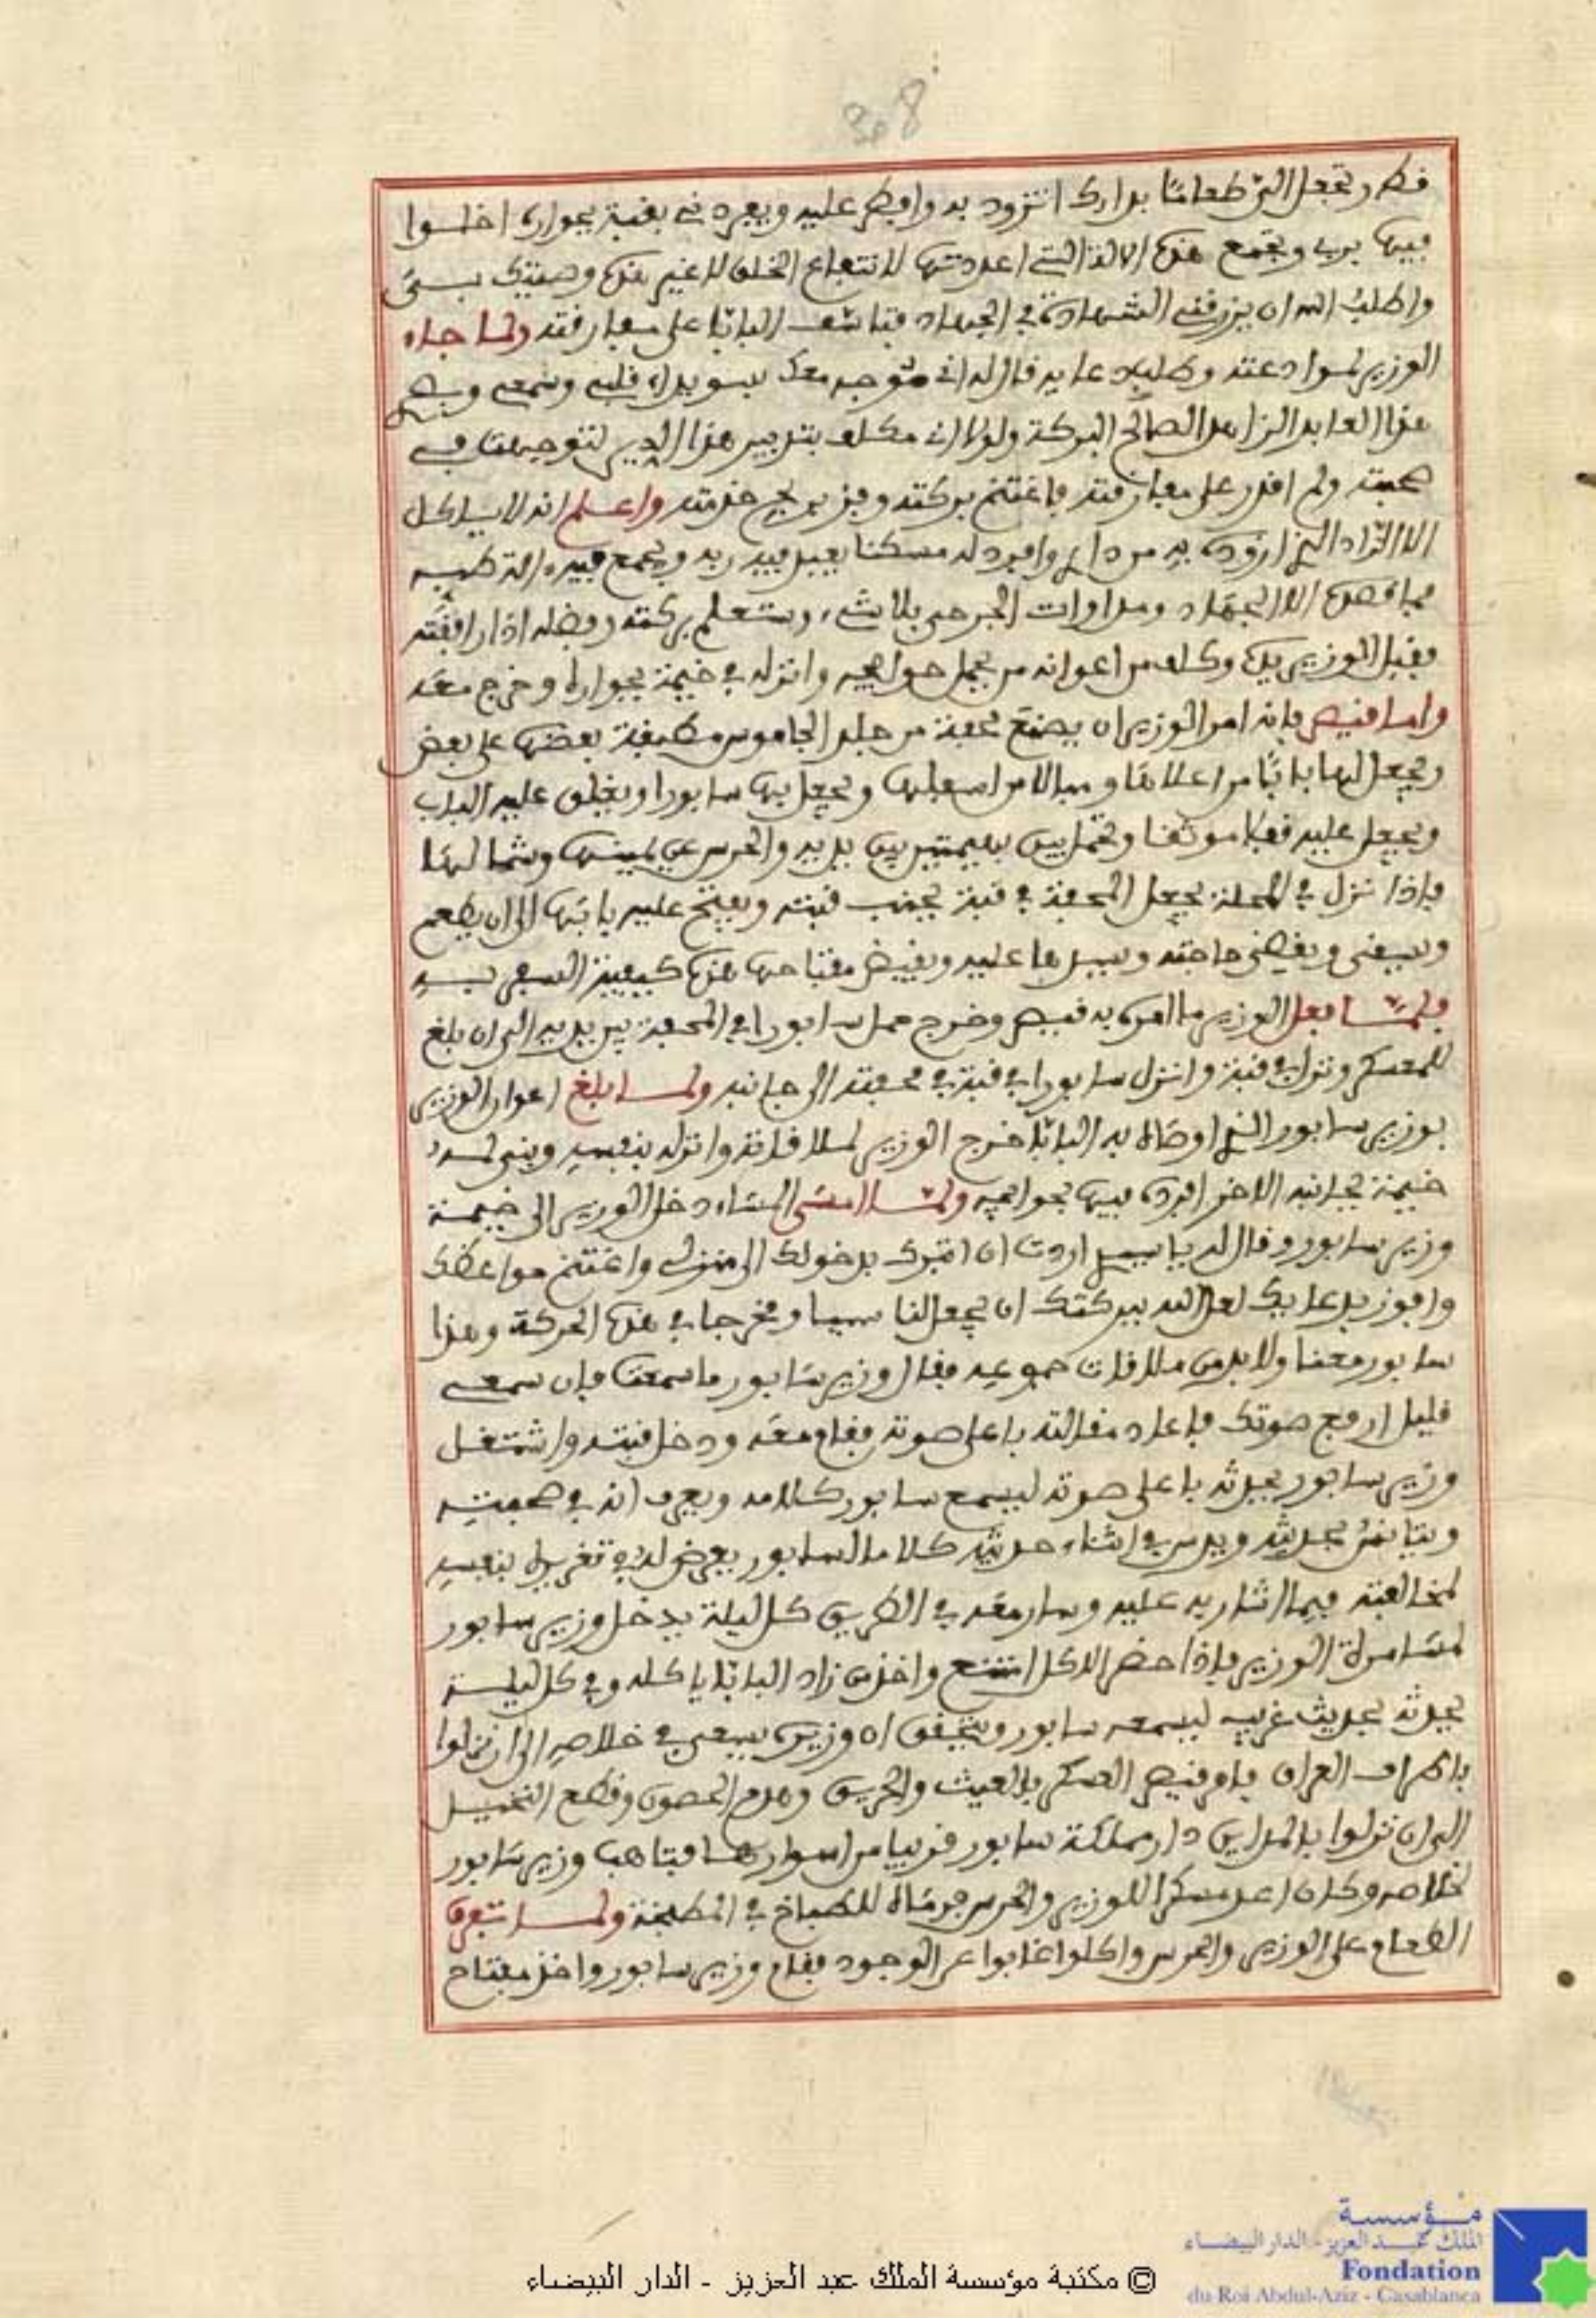 308
فكر وتجعل الىّ طعامًا بدارك اتزود به وافطر عليه ويفردني بقبة بجوارك اخلوا
فيها بربي وتجمع هذه الالة التي اعددتها لانتفاع الخلق لا غير هذه وصيتي
واطلب الله ان يرزقني الشهادة في الجهاد فتاسف الباتبا على مفارقته ولما جاء
الوزير لموادعته وطلب دعايه قال له اني متوجه معك بسويداء قلبي وسمعي
هذا العابد الزاهد الصالح البركة ولولا اني مكلف بتدبير هذا الدير لتوجهت في
صحبته ولم اقدر على مفارقته فاغتنم بركته وفز خدمته واعلم انه لا ياكل
الا الزاد الذي ازوده به من داري وافرد له مسكنا يقبل فيه ربه ويجمع فيه الة طبه
فما قصده الا الجهاد ومداوات الجرحى بلا شيء وستعلم بركته وفضله اذا رافقته
فقبل الوزير يده وكلف من اعوانه من يحمل حوايجه وانزله في خيمة بجواره وخرج معه
واما قيصر فانه امر الوزير ان يصنع محفة من جلد الجاموس مطبقة بعضها على بعض
ويجعل لها بابًا من اعلاها ومبالا من اسفلها ويجعل بها سابورا ويغلق عليه الباب
ويجعل عليه قفلا موثقا وتحمل بين بهيمتين بين يديه والحرس عن يمينها وشمالها
فاذا نزل في المحلة يجعل المحفة في قبة بجنب قبته ويفتح عليه بابها الى ان يطعم
ويسقى ويقضي حاجته ويسدها عليه ويقبض مفتاحها هذه كيفية السفر به
فلما فعل الوزير ما امره به قيصر وخرج حمل سابورا في المحفة بين يديه الى ان بلغ
للمعسكر ونزل في قبة وانزل سابورا في قبة في محفته الى جانبه ولما بلغ اعوان الوزير
بوزير سابور الذي اوصاه به الباتبا خرج الوزير لملاقاته وانزله بنفسه وبنى له
خيمة بجانبه الاخر افرده فيها بحوايجه ولما امسى المساء دخل الوزير الى خيمة
وزير سابور وقال له يا سيدي اردت ان اتبرك بدخولك الى منزلي واغتنم مواعظك
وافوز بدعايك لعل الله ببركتك ان يجعل لنا سببا ومخرجا في هذه الحركة وهذا
سابور معنا ولا بد من ملاقات جموعه فقال وزير سابور ما سمعت فان سمعي
قليل ارفع صوتك فاعاد مقالته باعلى صوته فقام معه ودخل قبته واشتغل
وزير سابور يحدثه باعلى صوته ليسمع سابور كلامه ويعرف انه في صحبته
ويتانس بحديثه ويدس في اثناء حديثه كلاما لسابور يعرض له في تغريره بنفسه
لمخالفته فيما اشار به عليه وسار معه في الطريق كل ليلة يدخل وزير سابور
لمسامرة الوزير فاذا حضر الاكل امتنع واخذ من زاد الباتبا ياكله وفي كل ليلة
يحدثه بحديث غريب ليسمعه سابور ويتحقق ان وزيره يسعى في خلاصه الى ان نزلوا
باطراف العراق فامر قيصر العسكر بالعيث والحريق وهدم الحصون وقطع النخيل
الى ان نزلوا بالمداين دار مملكة سابور قريبا من اسوارها فتاهب وزير سابور
لخلاصه وكان اعد مسكرا للوزير والحرس فرماه للطباخ في المطبخة ولما تفرق
الطعام على الوزير والحرس واكلوا غابوا عن الوجود فقام وزير سابور واخذ مفتاح
© مكتبة مؤسسة الملك عبد العزيز - الدار البيضاء
مؤسسة
الملك عبد العزيز - الدار البيضاء
Fondation
du Roi Abdul-Aziz - Casablanca